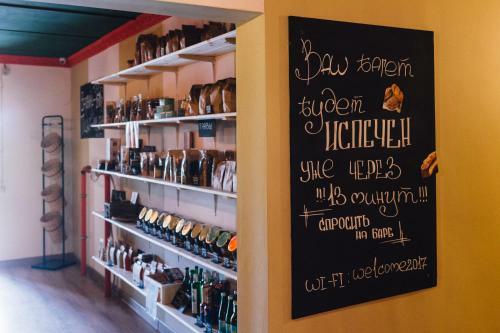 Ваш багет
будет
ИСПЕЧЕН
уже через
!!!13 минут!!!
спросить
на баре
WI-FI: welcome2017